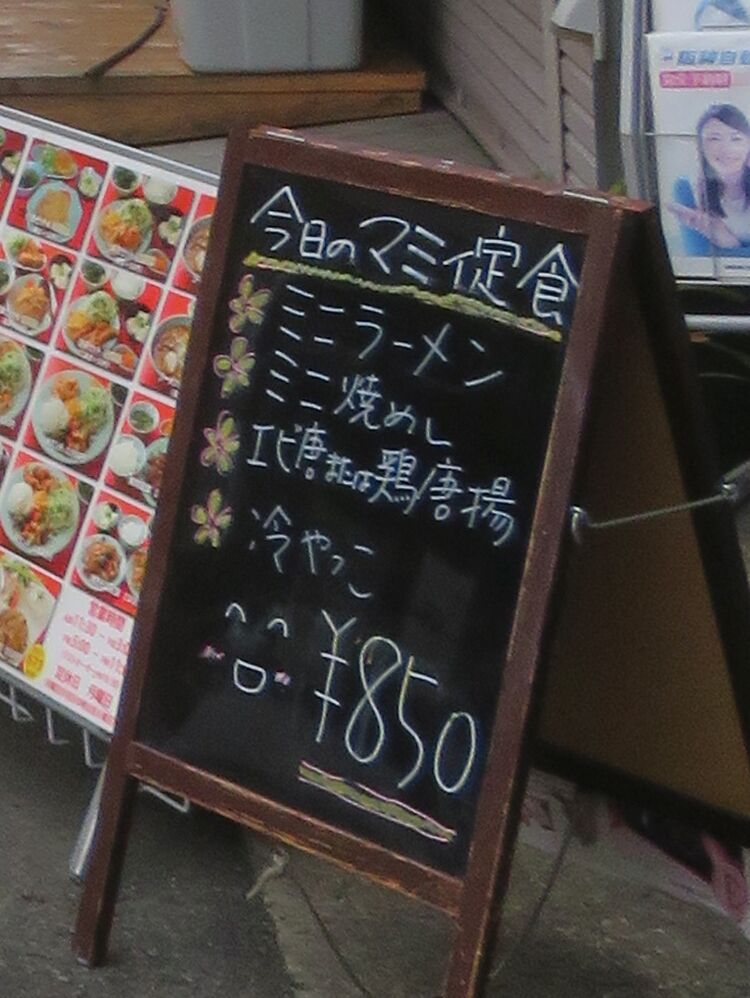 今日のマミ定食
ミニラーメン
ミニ焼めし
エビ唐または鶏唐揚
冷やっこ
¥850
営業時間
定休日 月曜日
阪神自動